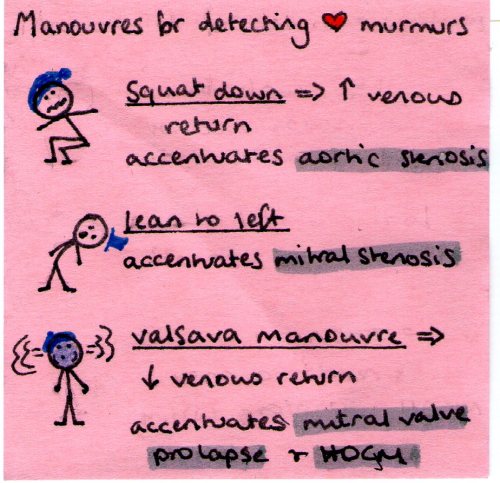 Manouvres for detecting ❤ murmurs
Squat down => ↑ venous
return
accentuates aortic stenosis
Lean to left
accentuates mitral stenosis
valsava manouvre =>
↓ venous return
accentuates mitral valve
prolapse + HOCM